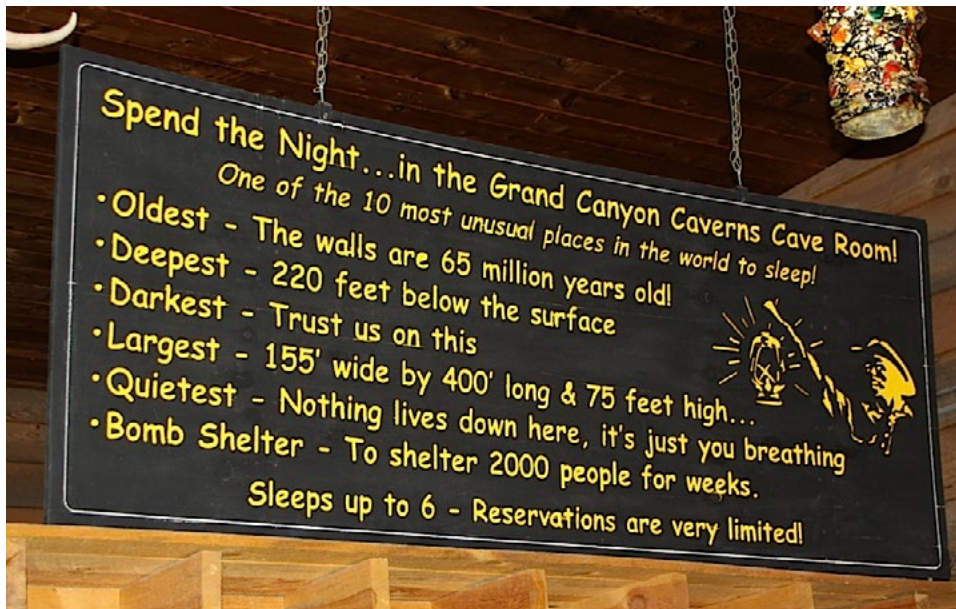 Spend the Night...in the Grand Canyon Caverns Cave Room!
One of the 10 most unusual places in the world to sleep!
·Oldest - The walls are 65 million years old!
·Deepest - 220 feet below the surface
·Darkest - Trust us on this
·Largest - 155' wide by 400' long & 75 feet high...
·Quietest - Nothing lives down here, it's just you breathing
·Bomb Shelter - To shelter 2000 people for weeks.
Sleeps up to 6 - Reservations are very limited!